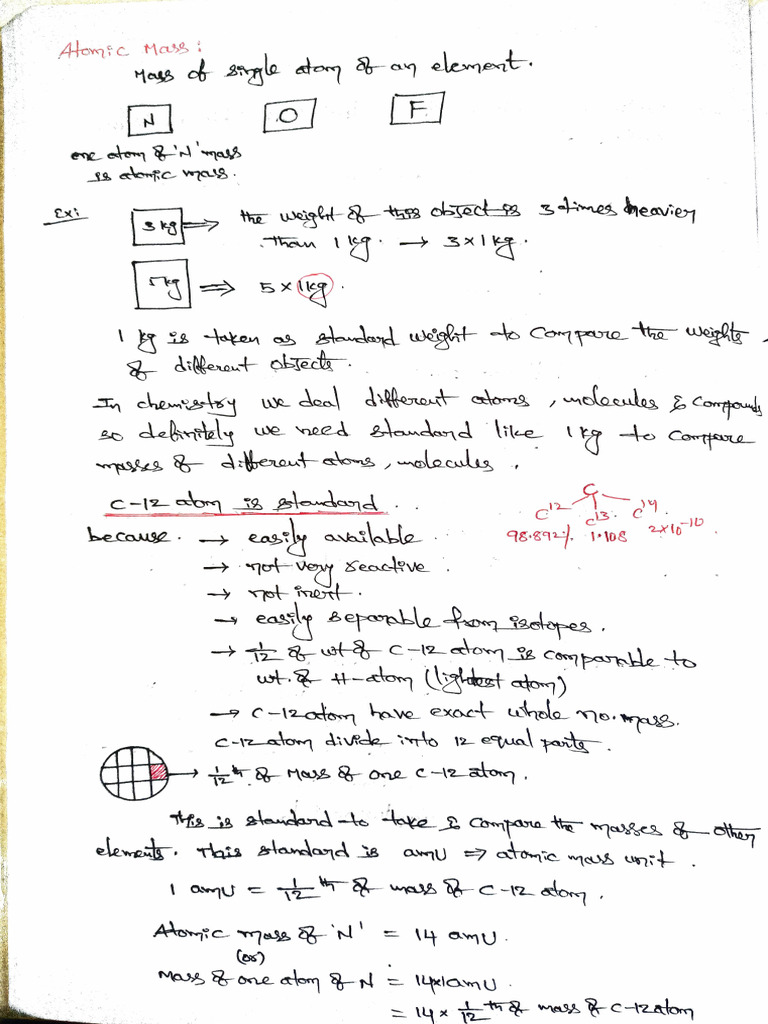 Atomic Mass:
Mass of single atom of an element.
N O F
one atom of 'N' mass
is atomic mass.
Ex: 3 kg ⇒ the weight of this object is 3 times heavier
than 1 kg. → 3 × 1 kg.
5 kg ⇒ 5 × 1 kg.
1 kg is taken as standard weight to compare the weights
of different objects.
In chemistry we deal different atoms, molecules & compounds
so definitely we need standard like 1 kg to compare
masses of different atoms, molecules.
C-12 atom is standard.
C
C12 C13 C14
98.892% 1.108 2×10-10
because. → easily available.
→ not very reactive.
→ not inert.
→ easily separable from isotopes.
→ 1/12 of wt of C-12 atom is comparable to
wt. of H-atom (lightest atom)
→ C-12 atom have exact whole no. mass.
C-12 atom divide into 12 equal parts.
→ 1/12th of mass of one C-12 atom.
This is standard to take & compare the masses of other
elements. This standard is amu ⇒ atomic mass unit.
1 amu = 1/12th of mass of C-12 atom.
Atomic mass of 'N' = 14 amu.
(or)
Mass of one atom of N = 14×1amu.
= 14 × 1/12th of mass of C-12 atom